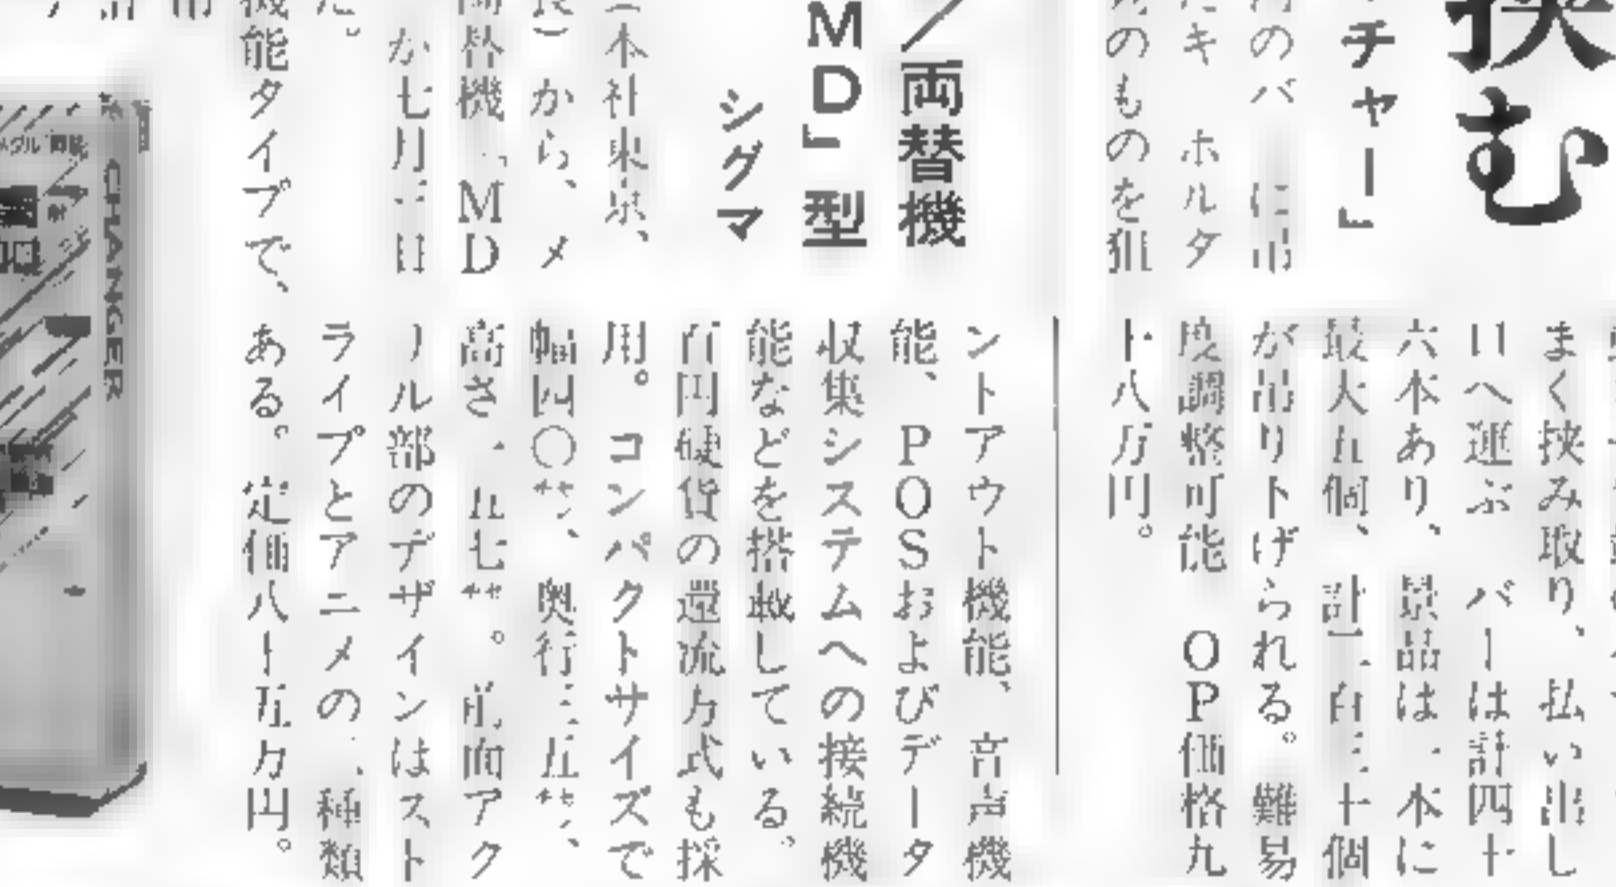 挟む
チャー」
のバーに
キーホルダ
のものを狙
まく挟み取り、払い出し
口へ運ぶ。バーは計四十
六本あり、景品は一本に
最大五個、計二百三十個
が吊り下げられる。難易
度調整可能。OP価格九
十八万円。
/両替機
MD」型
シグマ
本社東京、
から、メ
両替機「MD
が七月三日
機能タイプで、
ントアウト機能、音声機
能、POSおよびデータ
収集システムへの接続機
能などを搭載している。
百円硬貨の還流方式も採
用。コンパクトサイズで
幅四〇㌢、奥行三五㌢、
高さ一五七㌢。前面アク
リル部のデザインはスト
ライプとアニメの二種類
ある。定価八十五万円。
CHANGER
メダル